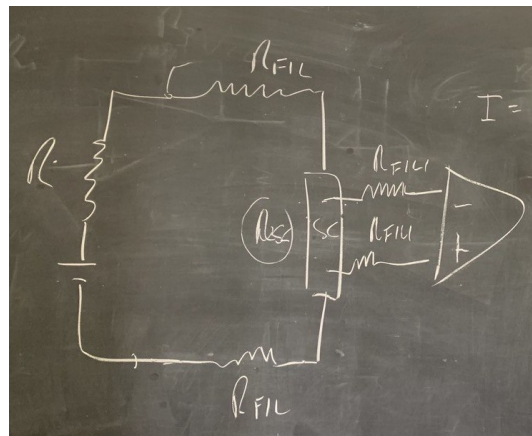 R_FIL
I =
R_FILI
R
R_SC
SC
-
R_FILI
+
R_FIL